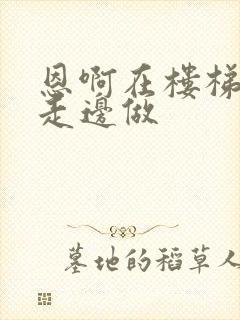 恩啊在楼梯
走邊做
墓地的稻草人